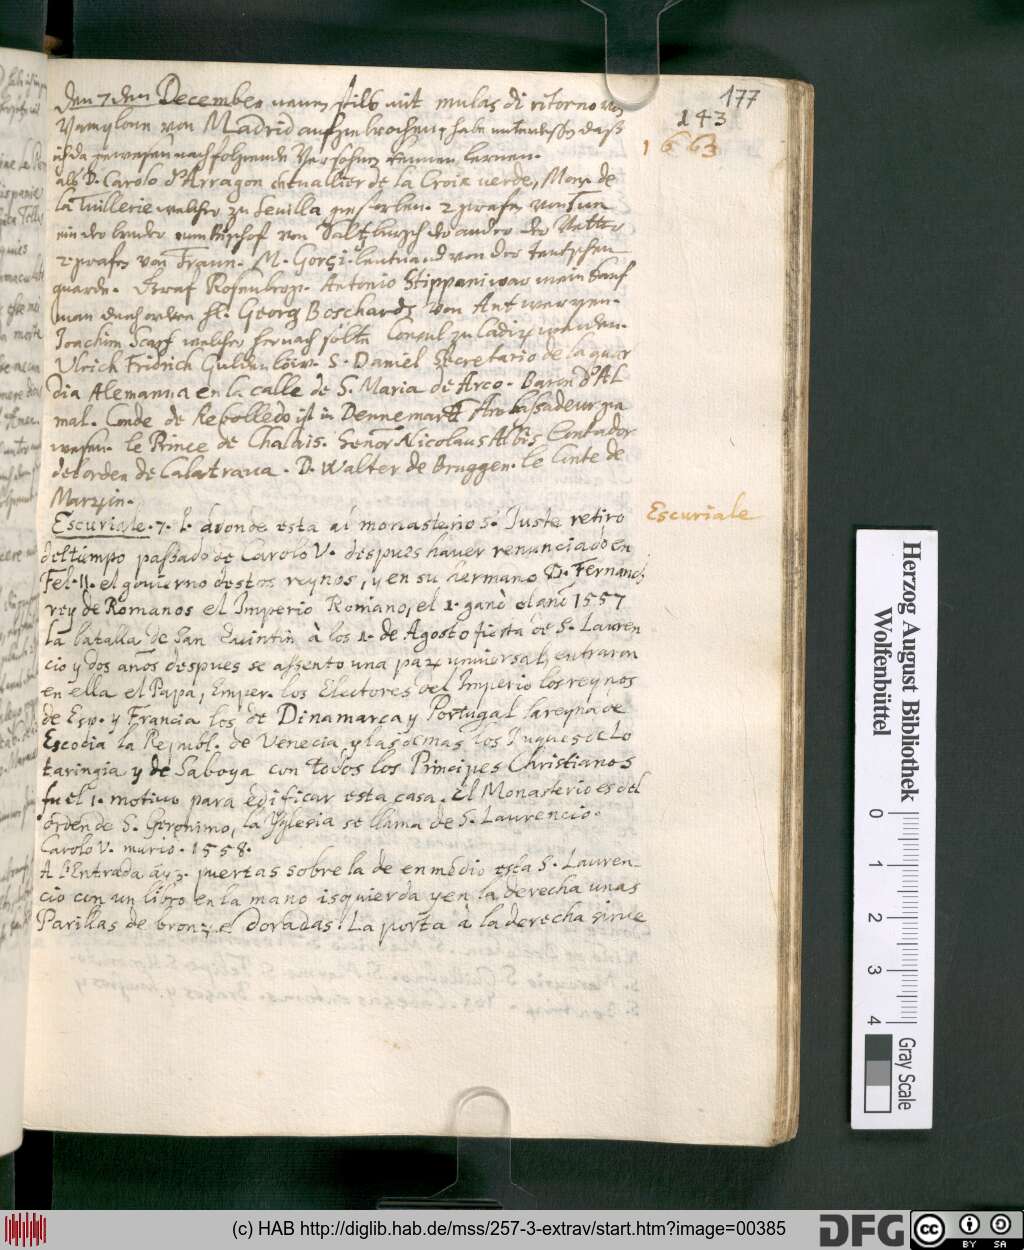 177
143
1663
Den 7 den December neuen stils mit mulas di ritorno von
Pamplone von Madrid aufgebrochen, habe unterdessen daß
ich da gewesen nachfolgende Persohnen kennen lernen.
als D. Carolo d'Arragon chevallier de la Croix verde, Mons. de
la Tuillerie welcher zu Sevilla gestorben. 2 grafen von Tun
ein der bruder vom Bischof von Saltzburgh der ander der Vetter
2 grafen von Traun. M. Gorgi leutnand von der teutschen
guarde. Graf Rosenbrog. Antonio Stippani war mein Kauf
man H. Georg Boschardt von Antwerpen.
Joachim Scarf welcher hernach solte Consul zu Cadix werden.
Ulrich Fridrich Guldenlöw. S. Daniel Secretario de la guar
dia Alemanna en la calle de S. Maria de Arco. Baron d'Al
mal. Conde de Rebolledo ist in Dennemarck Ambassadeur ge
wesen. le Prince de Chalais. Señor Nicolaus Albis Contador
del orden de Calatrava. D. Walter de Bruggen. le Conte de
Marzin.
Escuriale
Escuriale. 7. l. adonde esta al monasterio S. Juste retiro
del tiempo passado de Carolo V. despues haver renunciado en
Fel. II. el govierno destos reynos, y en su hermano D. Fernand.
rey de Romanos el Imperio Romano, el 1. ganò el anñ 1557
la batalla de San Quintin à los 1. de Agosto fiesta de S. Lauren
cio y dos años despues se assento una paz universal, entraron
en ella el Papa, Emper. los Electores del Imperio los reynos
de Esp. y Francia los de Dinamarca y Portugal la reyna de
Escodia la Republ. de Venecia y las demas los Duques de Lo
taringia y de Saboya con todos los Principes Christianos
fu el 1. motivo para edificar esta casa. El Monasterio es del
orden de S. Geronimo, la Yglesia se llama de S. Laurencio.
Carolo V. murio. 1558.
A l'Entrada ay 3. puertas sobre la de en medio esta S. Lauren
cio con un libro en la mano isquierda y en la derecha unas
Parillas de bronze doradas. La porta à la derecha sirve
Herzog August Bibliothek
Wolfenbüttel
0 1 2 3 4
Gray Scale
(c) HAB http://diglib.hab.de/mss/257-3-extrav/start.htm?image=00385
DFG
cc
BY SA